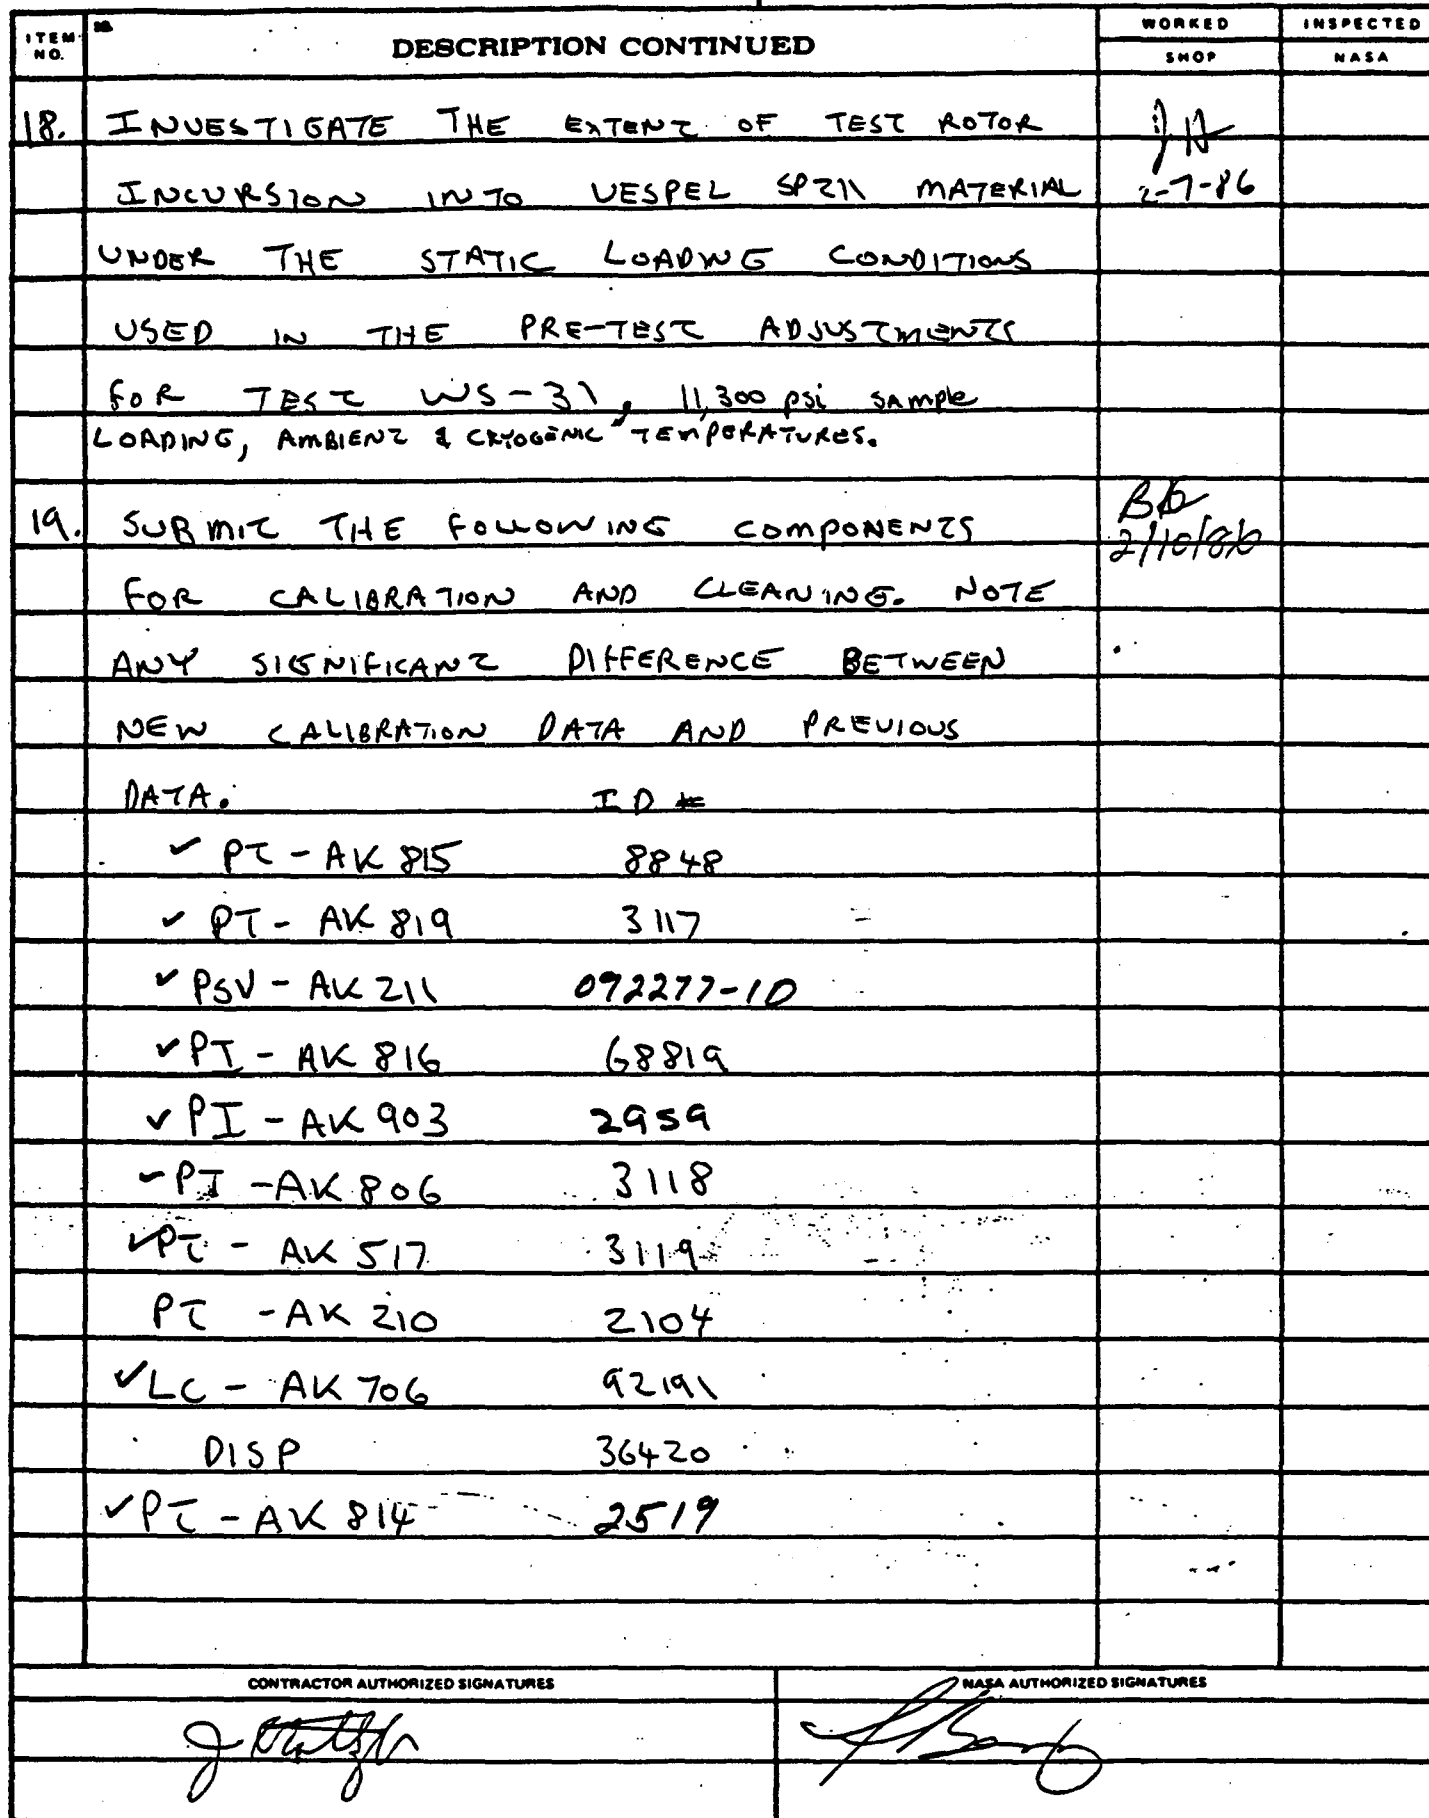 ITEM NO.
DESCRIPTION CONTINUED
WORKED
SHOP
INSPECTED
NASA
18. INVESTIGATE THE EXTENT OF TEST ROTOR
JH
INCURSION INTO VESPEL SP211 MATERIAL
2-7-86
UNDER THE STATIC LOADING CONDITIONS
USED IN THE PRE-TEST ADJUSTMENTS
FOR TEST WS-31, 11,300 psi sample
LOADING, AMBIENT & CRYOGENIC TEMPERATURES.
19. SUBMIT THE FOLLOWING COMPONENTS
2/10/86
FOR CALIBRATION AND CLEANING. NOTE
ANY SIGNIFICANT DIFFERENCE BETWEEN
NEW CALIBRATION DATA AND PREVIOUS
DATA. ID #
✓ PT - AK 815 8848
✓ PT - AK 819 3117
✓ PSV - AK 211 092277-1D
✓ PI - AK 816 68819
✓ PI - AK 903 2959
✓ PI - AK 806 3118
✓ PT - AK 517 3119
PT - AK 210 2104
✓ LC - AK 706 92191
DISP 36420
✓ PT - AK 814 2519
CONTRACTOR AUTHORIZED SIGNATURES
NASA AUTHORIZED SIGNATURES